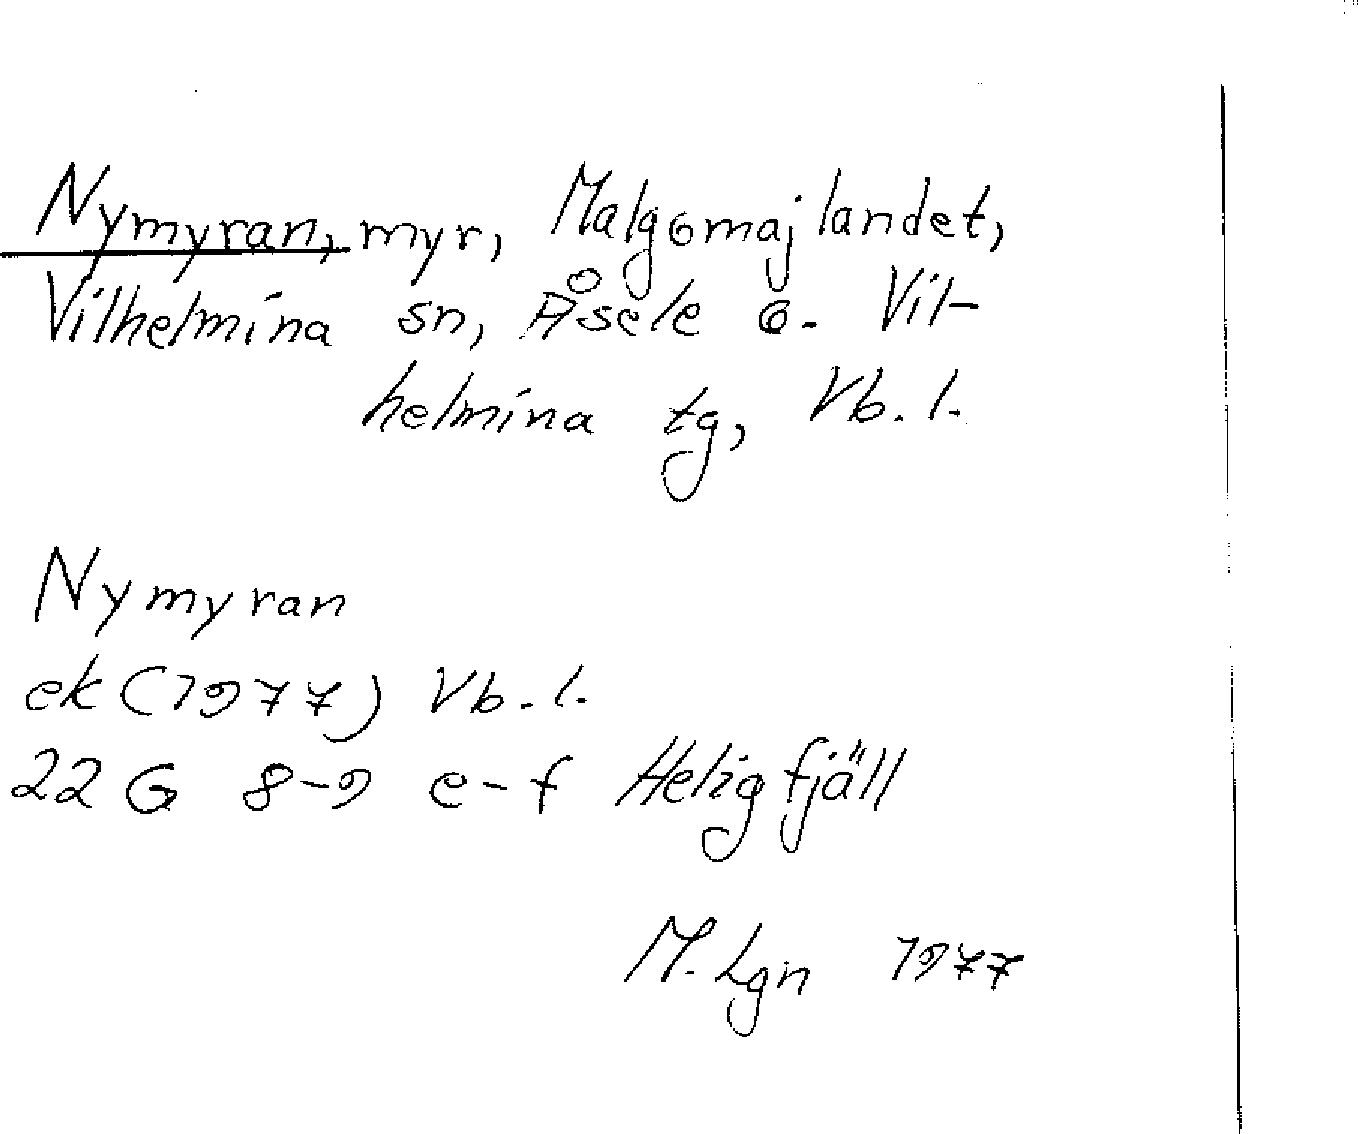 Nymyran, myr, Malgomajlandet,
Vilhelmina sn, Åsele o. Vil-
helmina tg, Vb. l.
Nymyran
ek (1977) Vb. l.
22 G 8-9 e-f Heligfjäll
M. Lgn 1977